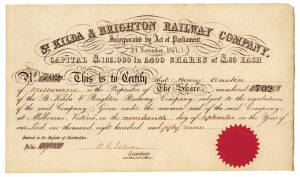 ST KILDA & BRIGHTON RAILWAY COMPANY.
Incorporated by Act of Parliament.
24 November 1857.
CAPITAL IN SHARES OF EACH
No. 702 This is to Certify that Henry Austin
of Melbourne is the Proprietor of The Share numbered 702
of the St. Kilda & Brighton Railway Company, subject to the regulations
of the said Company. Given under the common seal of the said Company
at Melbourne, Victoria, on the nineteenth day of September in the Year of
our Lord one thousand eight hundred and fifty nine.
Entered in the Register of Shareholders
Secretary